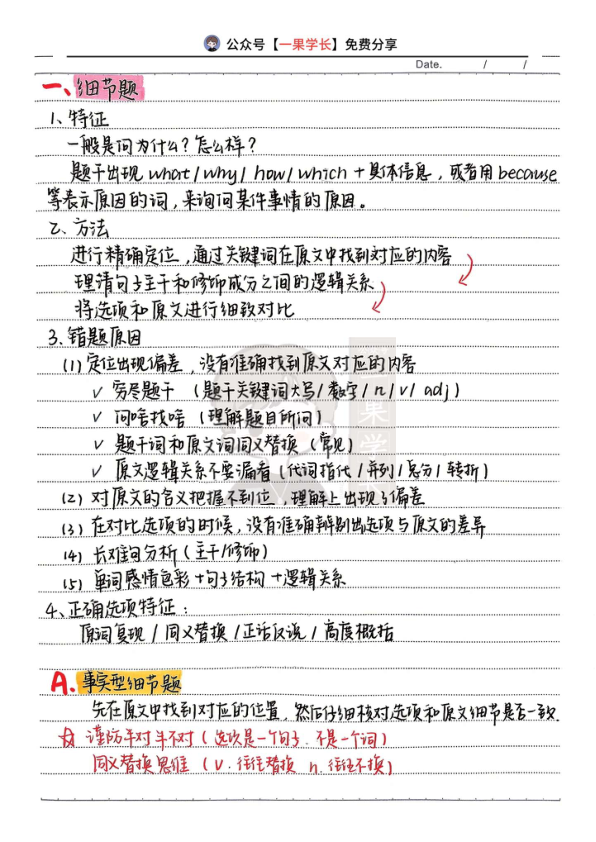 公众号【一果学长】免费分享
Date. / /
一、细节题
1、特征
一般是问为什么？怎么样？
题干出现 what / why / how / which + 具体信息，或者用 because
等表示原因的词，来询问某件事情的原因。
2、方法
进行精确定位，通过关键词在原文中找到对应的内容
理清句子主干和修饰成分之间的逻辑关系
将选项和原文进行细致对比
3、错题原因
(1) 定位出现偏差，没有准确找到原文对应的内容
✓ 穷尽题干 （题干关键词大写/数字/n/v/adj）
✓ 问啥找啥（理解题目所问）
✓ 题干词和原文词同义替换（常见）
✓ 原文逻辑关系不要漏看（代词指代/并列/总分/转折）
(2) 对原文的含义把握不到位，理解上出现了偏差
(3) 在对比选项的时候，没有准确辨别出选项与原文的差异
(4) 长难句分析（主干/修饰）
(5) 单词感情色彩+句子结构+逻辑关系
4、正确选项特征：
原词复现 / 同义替换 / 正话反说 / 高度概括
A. 事实型细节题
先在原文中找到对应的位置，然后仔细核对选项和原文细节是否一致.
☆ 谨防半对半不对（选项是一个句子，不是一个词）
同义替换思维（v.往往替换 n.往往不换）
果学